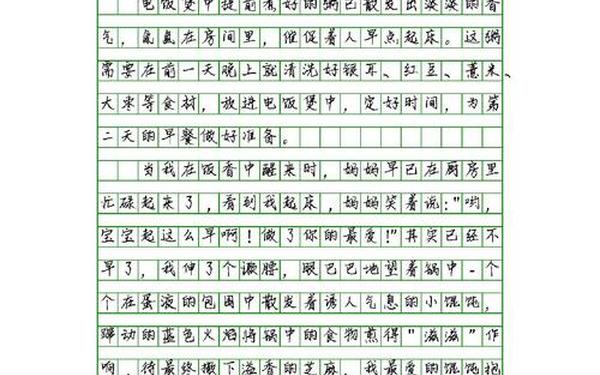 电饭煲中提前煮好的粥已散发出淡淡的香
气，氤氲在房间里，催促着人早点起床。这粥
需要在前一天晚上就清洗好银耳、红豆、薏米、
大枣等食材，放进电饭煲中，定好时间，为第
二天的早餐做好准备。
当我在饭香中醒来时，妈妈早已在厨房里
忙碌起来了，看到我起床，妈妈笑着说："哟，
宝宝起这么早啊！做了你的最爱！"其实已经不
早了，我伸了个懒腰，眼巴巴地望着锅中-个
个在蛋液的包围中散发着诱人气息的小馄饨，
蹿动的蓝色火焰将锅中的食物煎得"滋滋"作
响，待最终撒下溢香的芝麻，我最爱的馄饨抱